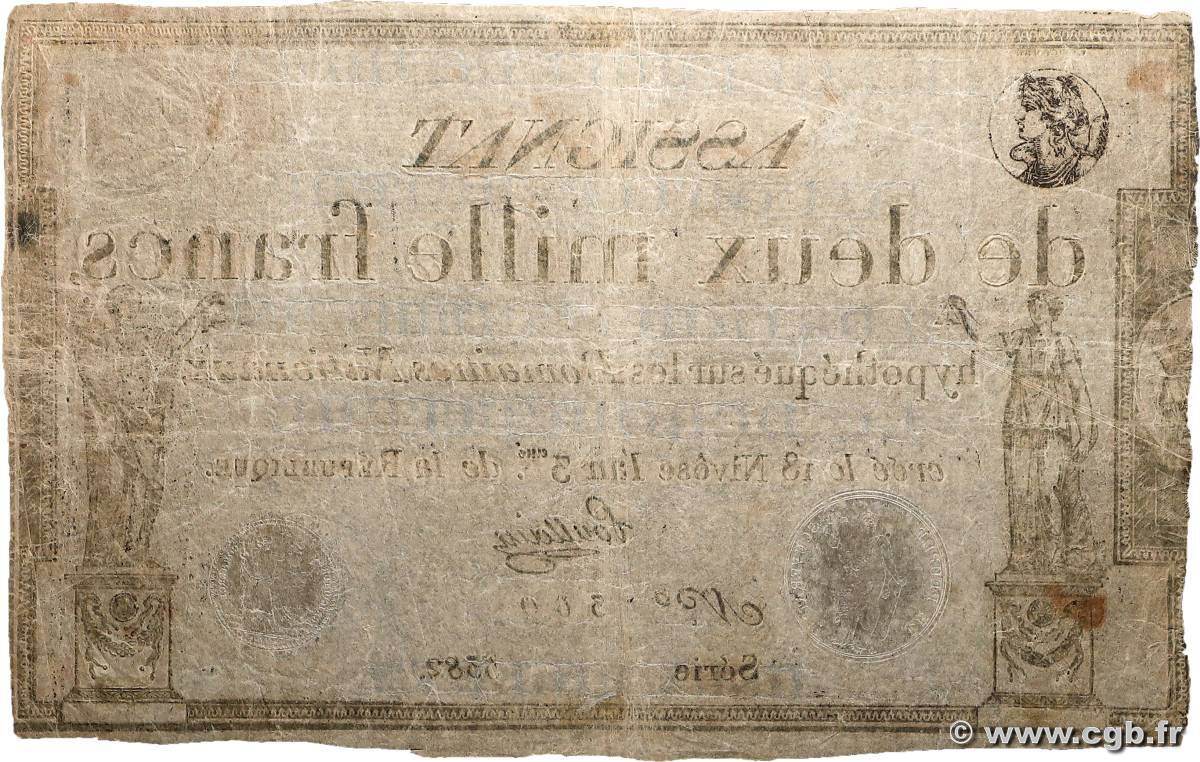 ASSIGNAT
de deux mille francs,
hypothéqué sur les Domaines Nationaux,
créé le 18 Nivôse l'an 3.eme de la République.
No. 500
Série 3382.
© www.cgb.fr